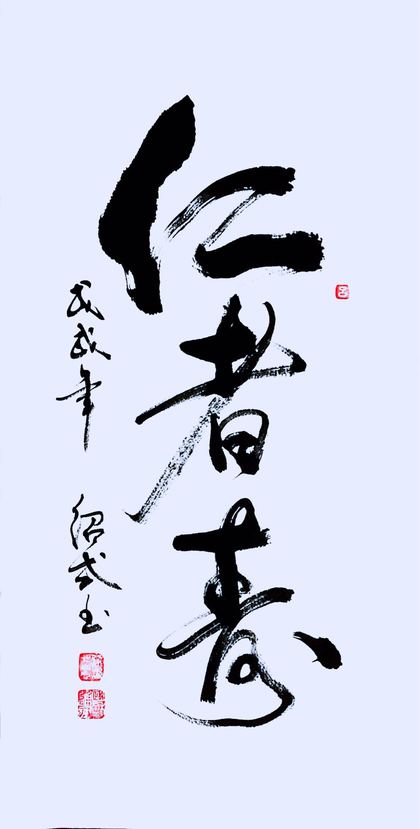 仁者寿
戊戌年 绍 书